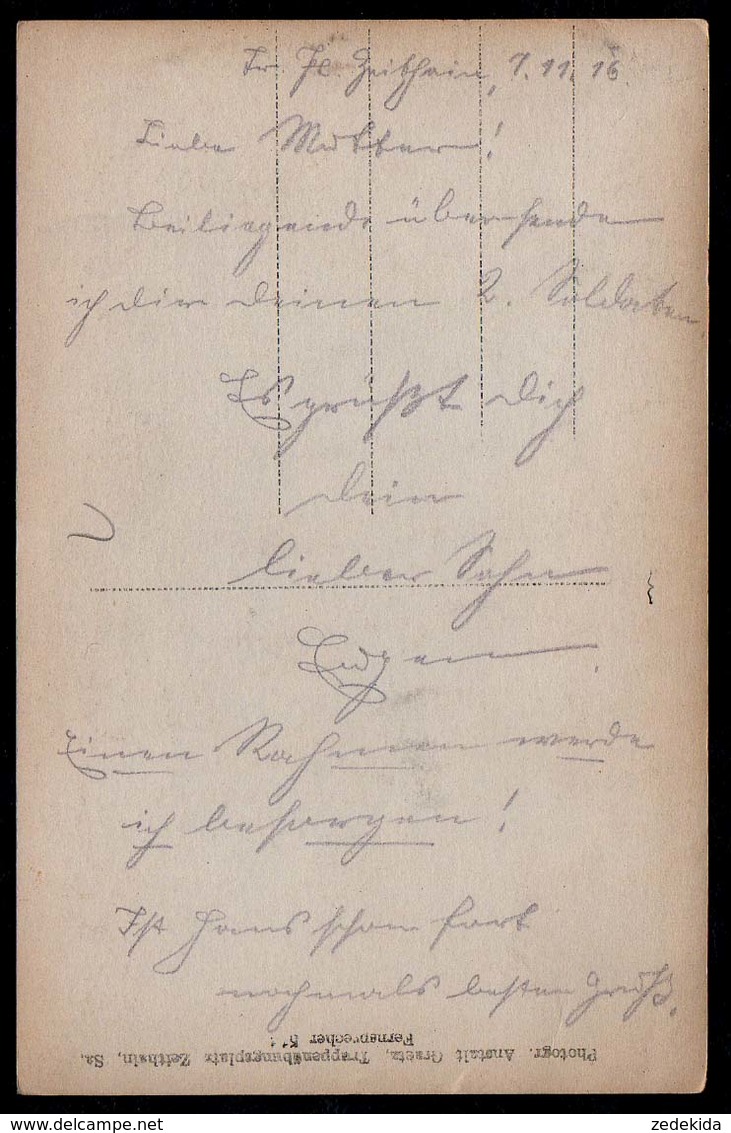 Tr. Pl. Zeithain, 7.11.16.
Liebe Mutter!
Beiliegend übersende
ich dir deinen 2. Soldaten.
Es grüßt Dich
dein
lieber Sohn
Eugen.
Einen Rahmen werde
ich besorgen!
Ist Hans schon fort
nochmals besten Gruß.
Fernsprecher 51
Photogr. Anstalt Graetz, Truppenübungsplatz Zeithain, Sa.
delcampe.net
zedekida